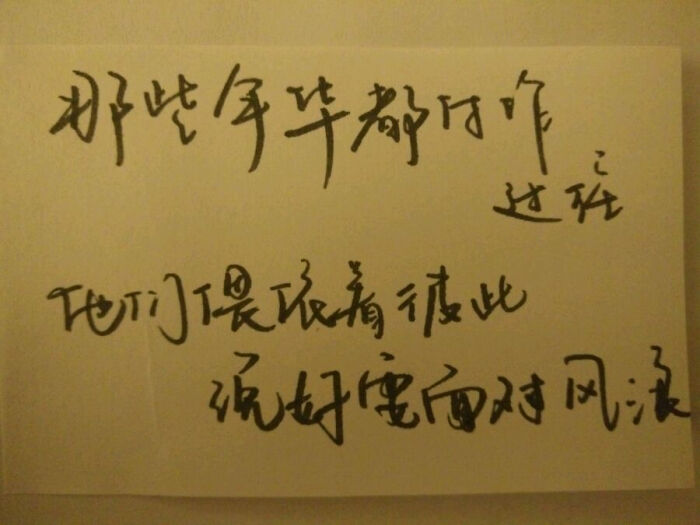 那些年华都付昨
过往
他们偎依着彼此
说好要面对风浪